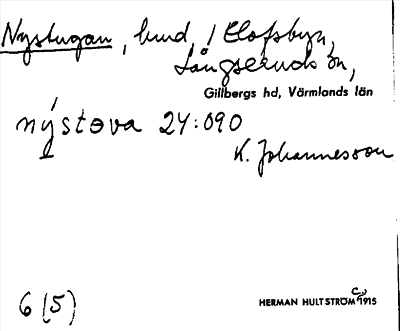 Nystugan, hmd, i Elofsbyn,
Långseruds sn,
Gillbergs hd, Värmlands län
nýstova 24:090
K. Johannesson
6 (5)
HERMAN HULTSTRÖM Co 1915